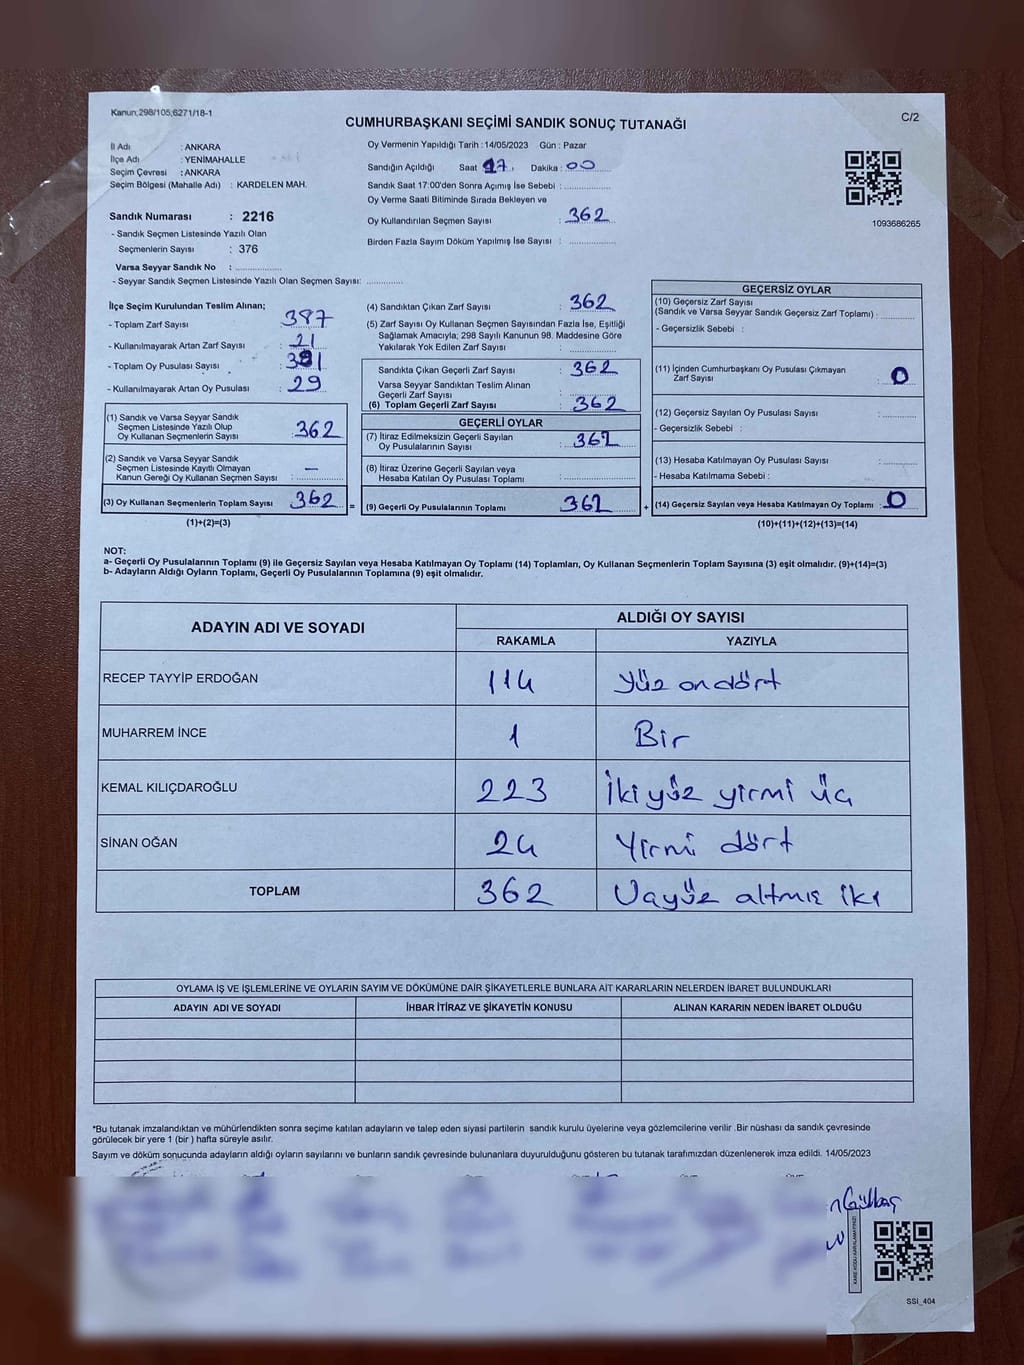 Kanun;298/105;6271/18-1
C/2
CUMHURBAŞKANI SEÇİMİ SANDIK SONUÇ TUTANAĞI
İl Adı : ANKARA
İlçe Adı : YENİMAHALLE
Seçim Çevresi : ANKARA
Seçim Bölgesi (Mahalle Adı) : KARDELEN MAH.
Sandık Numarası : 2216
- Sandık Seçmen Listesinde Yazılı Olan
Seçmenlerin Sayısı : 376
Varsa Seyyar Sandık No : ................
- Seyyar Sandık Seçmen Listesinde Yazılı Olan Seçmen Sayısı: .............
Oy Vermenin Yapıldığı Tarih :14/05/2023 Gün : Pazar
Sandığın Açıldığı Saat 17 Dakika : 00
Sandık Saat 17:00'den Sonra Açımış İse Sebebi : ................
Oy Verme Saati Bitiminde Sırada Bekleyen ve
Oy Kullandırılan Seçmen Sayısı : 362
Birden Fazla Sayım Döküm Yapılmış İse Sayısı : ................
1093686265
İlçe Seçim Kurulundan Teslim Alınan;
- Toplam Zarf Sayısı 387
- Kullanılmayarak Artan Zarf Sayısı 21
- Toplam Oy Pusulası Sayısı
- Kullanılmayarak Artan Oy Pusulası 29
(1) Sandık ve Varsa Seyyar Sandık
Seçmen Listesinde Yazılı Olup
Oy Kullanan Seçmenlerin Sayısı : 362
(2) Sandık ve Varsa Seyyar Sandık
Seçmen Listesinde Kayıtlı Olmayan
Kanun Gereği Oy Kullanan Seçmen Sayısı : —
(3) Oy Kullanan Seçmenlerin Toplam Sayısı 362
(1)+(2)=(3)
(4) Sandıktan Çıkan Zarf Sayısı : 362
(5) Zarf Sayısı Oy Kullanan Seçmen Sayısından Fazla İse, Eşitliği
Sağlamak Amacıyla; 298 Sayılı Kanunun 98. Maddesine Göre
Yakılarak Yok Edilen Zarf Sayısı : ................
Sandıkta Çıkan Geçerli Zarf Sayısı : 362
Varsa Seyyar Sandıktan Teslim Alınan
Geçerli Zarf Sayısı : ................
(6) Toplam Geçerli Zarf Sayısı : 362
GEÇERLİ OYLAR
(7) İtiraz Edilmeksizin Geçerli Sayılan
Oy Pusulalarının Sayısı : 362
(8) İtiraz Üzerine Geçerli Sayılan veya
Hesaba Katılan Oy Pusulası Toplamı : ................
= (9) Geçerli Oy Pusulalarının Toplamı 362
GEÇERSİZ OYLAR
(10) Geçersiz Zarf Sayısı
(Sandık ve Varsa Seyyar Sandık Geçersiz Zarf Toplamı) : ............
- Geçersizlik Sebebi :
(11) İçinden Cumhurbaşkanı Oy Pusulası Çıkmayan
Zarf Sayısı : 0
(12) Geçersiz Sayılan Oy Pusulası Sayısı : ............
- Geçersizlik Sebebi :
(13) Hesaba Katılmayan Oy Pusulası Sayısı : ............
- Hesaba Katılmama Sebebi :
+ (14) Geçersiz Sayılan veya Hesaba Katılmayan Oy Toplamı : 0
(10)+(11)+(12)+(13)=(14)
NOT:
a- Geçerli Oy Pusulalarının Toplamı (9) ile Geçersiz Sayılan veya Hesaba Katılmayan Oy Toplamı (14) Toplamları, Oy Kullanan Seçmenlerin Toplam Sayısına (3) eşit olmalıdır. (9)+(14)=(3)
b- Adayların Aldığı Oyların Toplamı, Geçerli Oy Pusulalarının Toplamına (9) eşit olmalıdır.
ADAYIN ADI VE SOYADI ALDIĞI OY SAYISI
RAKAMLA YAZIYLA
RECEP TAYYİP ERDOĞAN 114 Yüz on dört
MUHARREM İNCE 1 Bir
KEMAL KILIÇDAROĞLU 223 İki yüz yirmi üç
SİNAN OĞAN 24 Yirmi dört
TOPLAM 362 Üçyüz altmış iki
OYLAMA İŞ VE İŞLEMLERİNE VE OYLARIN SAYIM VE DÖKÜMÜNE DAİR ŞİKAYETLERLE BUNLARA AİT KARARLARIN NELERDEN İBARET BULUNDUKLARI
ADAYIN ADI VE SOYADI İHBAR İTİRAZ VE ŞİKAYETİN KONUSU ALINAN KARARIN NEDEN İBARET OLDUĞU
*Bu tutanak imzalandıktan ve mühürlendikten sonra seçime katılan adayların ve talep eden siyasi partilerin sandık kurulu üyelerine veya gözlemcilerine verilir .Bir nüshası da sandık çevresinde
görülecek bir yere 1 (bir ) hafta süreyle asılır.
Sayım ve döküm sonucunda adayların aldığı oyların sayılarını ve bunların sandık çevresinde bulunanlara duyurulduğunu gösteren bu tutanak tarafımızdan düzenlenerek imza edildi. 14/05/2023
SSİ_404